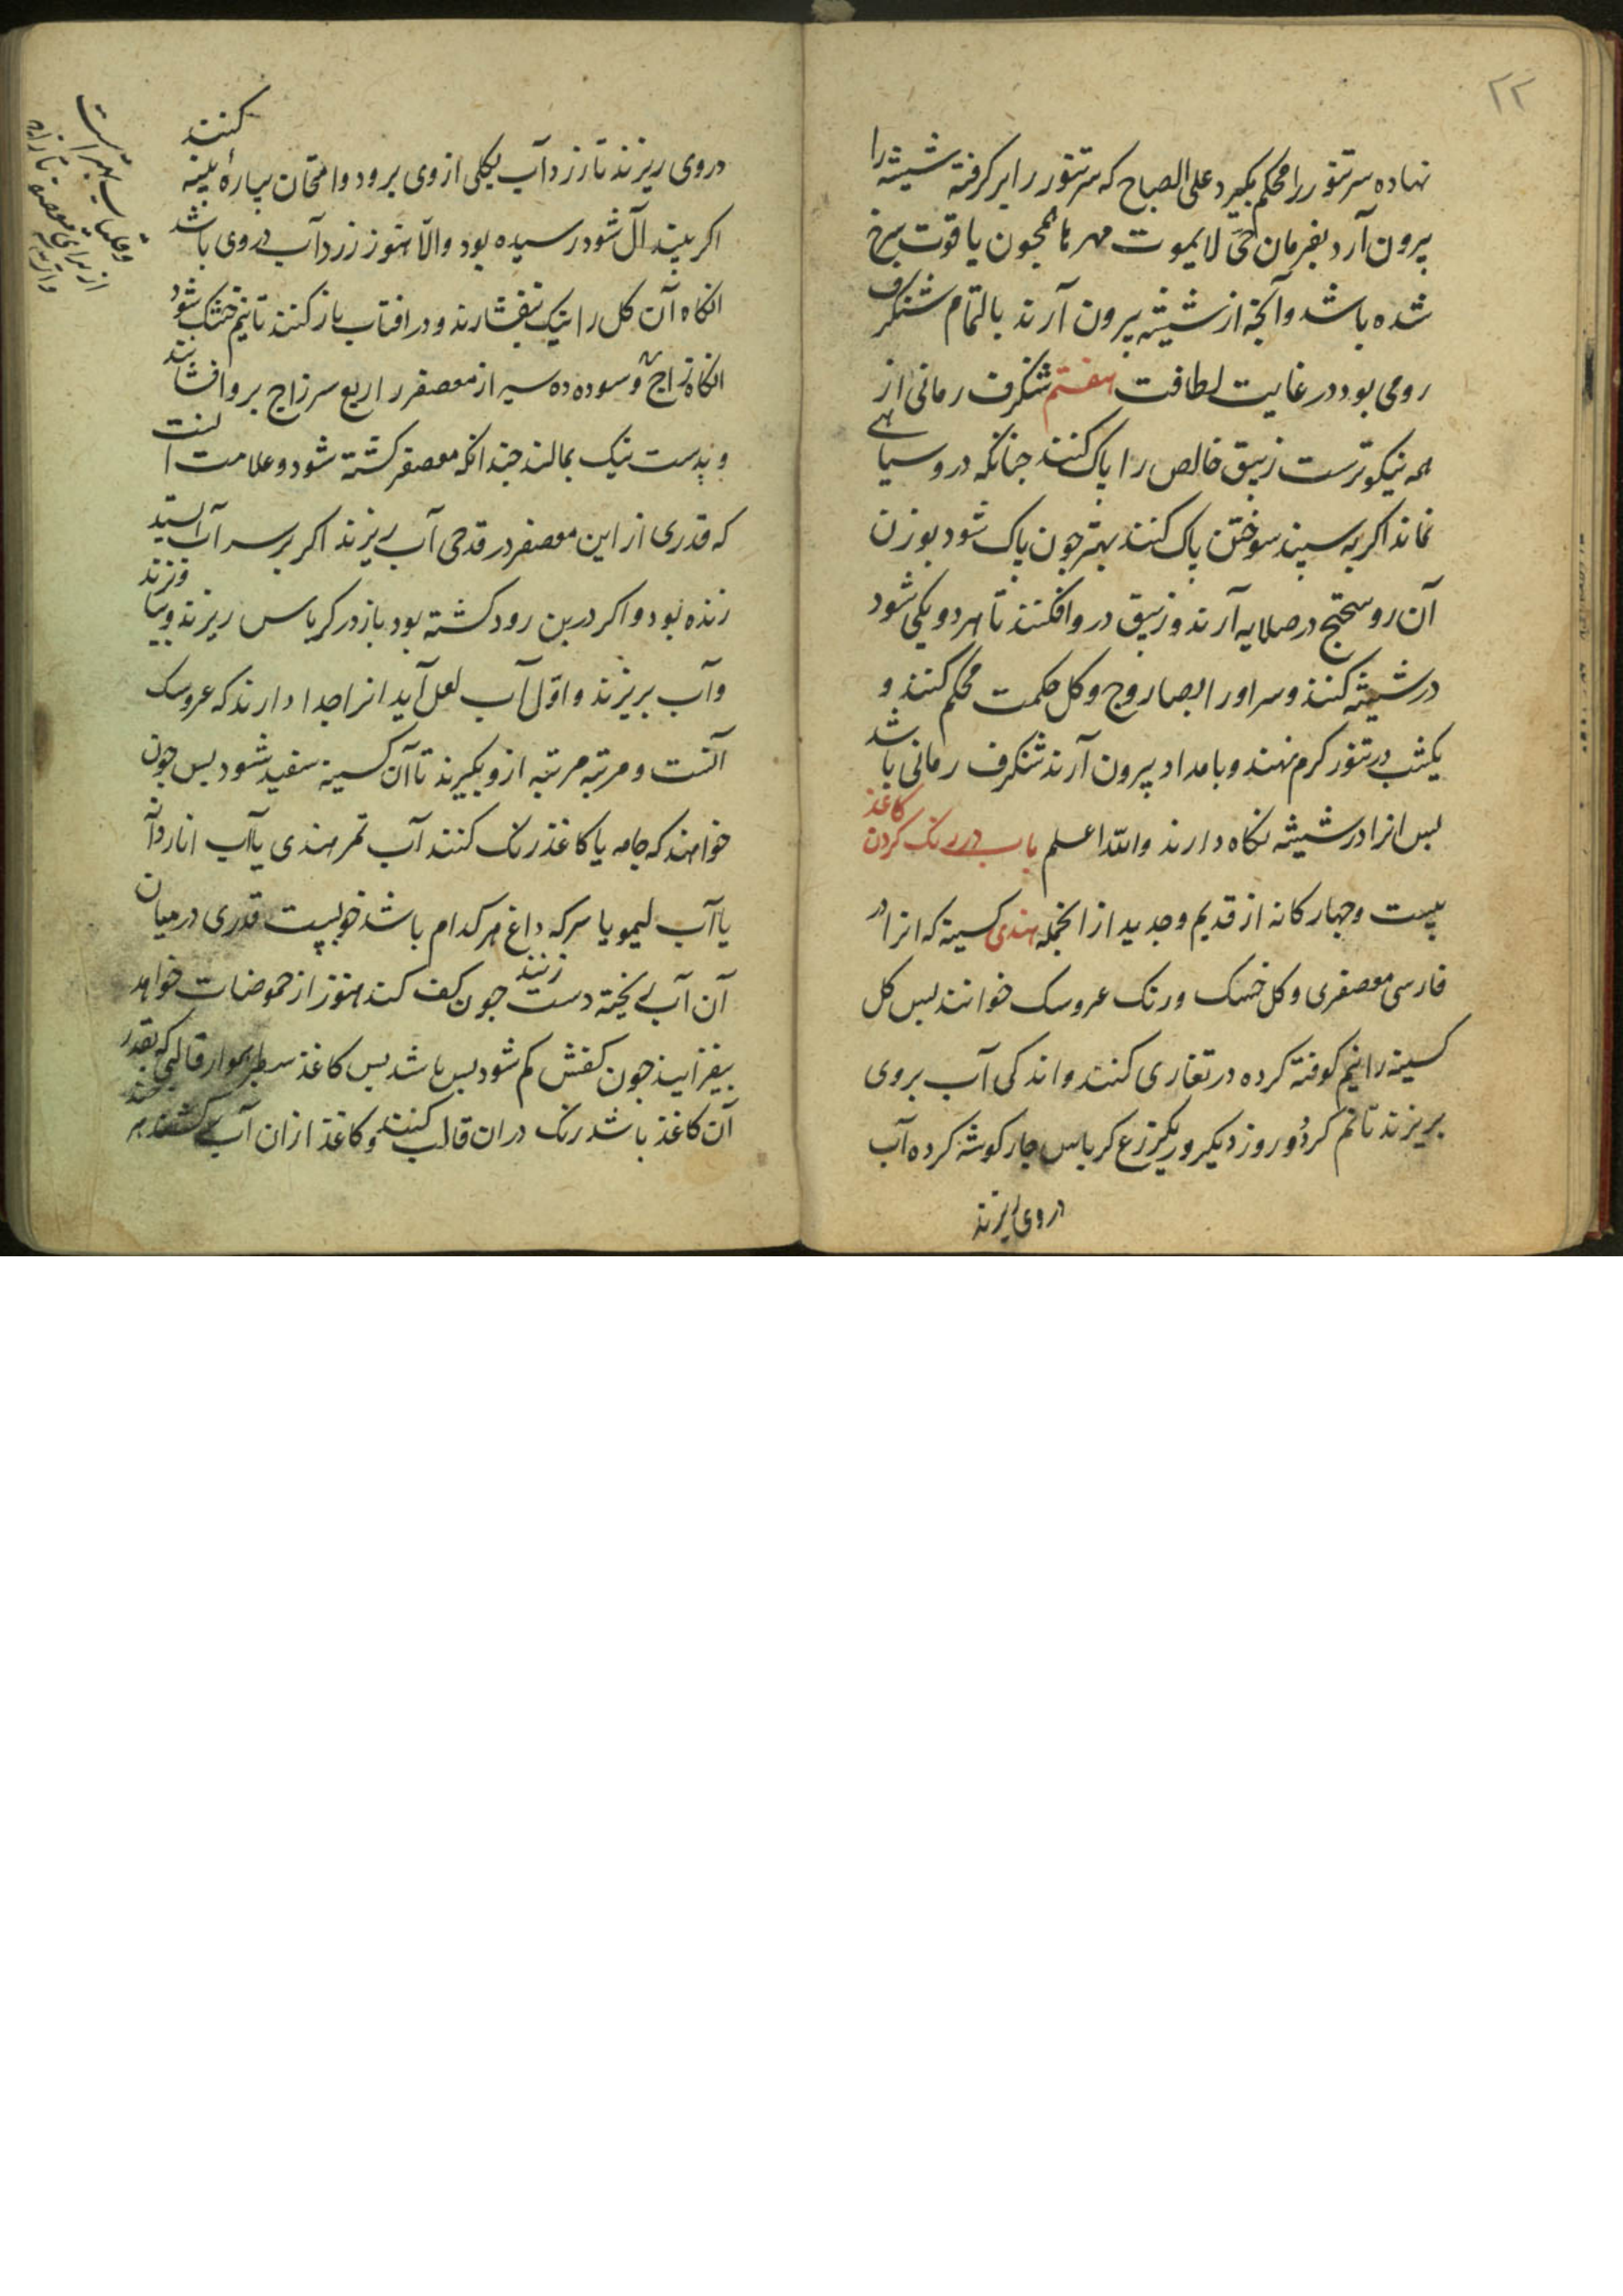 ۲۲
نهاده سر تنور را محکم بگیرد علی الصباح که سر تنور را بر کرفته شیشه را
بیرون آرد بفرمان حی لا یموت مهرها همچون یاقوت سرخ
شده باشد و آنچه از شیشه بیرون آرند بالتمام شنکرف
رومی بود در غایت لطافت هفتم شنکرف رمانی از
همه نیکوترست زیبق خالص را پاک کنند چنانکه درو سیاهی
نماند اکر به سپند سوختن پاک کنند بهتر چون پاک شود بوزن
آن روسختج در صلایه آرند و زیبق درو افکنند تا هر دو یکی شود
در شیشه کنند و سر او را بصاروج و کل حکمت محکم کنند و
یکشب در تنور کرم نهند و بامداد بیرون آرند شنکرف رمانی باشد
پس انرا در شیشه نکاه دارند والله اعلم باب در رنک کردن کاغذ
بیست و چهار کانه از قدیم و جدید از انجمله هندی کسینه که انرا در
فارسی معصفری و کل خسک و رنک عروسک خوانند پس کل
کسینه را نیم کوفته کرده در تغاری کنند و اندکی آب بروی
بریزند تا نم کردد و روز دیکر و ر یکزرع کرباس چار کوشه کرده آب
در وی ریزند
در وی ریزند تا زرد آب بکلی از وی برود و امتحان بپارهٔ پنبه کنند
اکر پنبه آل شود رسیده بود و الا هنوز زرد آب در وی باشد
انکاه آن کل را نیک بیفشارند و در افتاب باز کنند تا نیم خشک شود
انکاه زاج سوده ده سیر از معصفر را ربع سر زاج برو افشانند
و بدست نیک بمالند چندانکه معصفر کشته شود و علامت انست
که قدری از این معصفر در قدحی آب ریزند اکر بر سر آب ایستد
زنده بود و اکر در بن رود کشته بود باز در کرباس ریزند و بیاویزند
و آب بریزند و اول آب لعل آید انرا جدا دارند که عروسک
آنست و مرتبه مرتبه ازو بکیرند تا آن کسینه سفید شود پس چون
خواهند که جامه یا کاغذ رنک کنند آب تمر هندی یا آب انار دانه
یا آب لیمو یا سرکه داغ هر کدام باشد خوبست قدری در میان
آن آب ریخته دست زنند چون کف کند هنوز از حموضات خواهد
بیفزایند چون کفش کم شود بس باشد پس کاغذ سطبر هموار قالبی که بقدر
آن کاغذ باشد رنک در ان قالب کنند و کاغذ ازان آب کشند
بهتر است
از برای معصفر